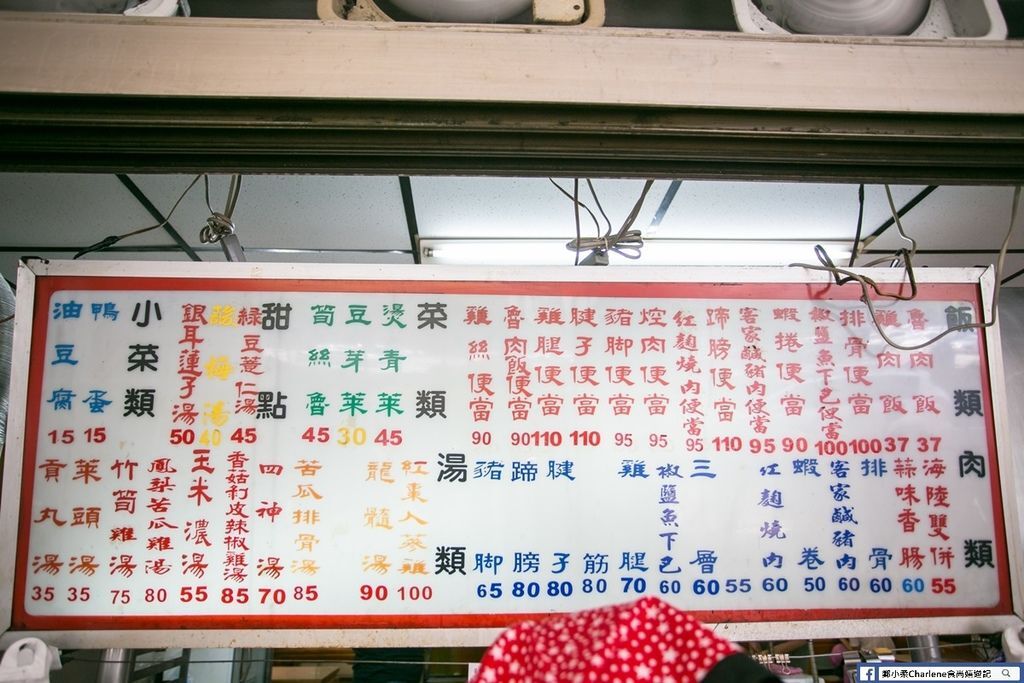 飯類
魯肉飯 37
雞肉飯 37
排骨便當 100
椒鹽魚下巴便當 100
蝦捲便當 90
客家鹹豬肉便當 95
蹄膀便當 110
紅麴燒肉便當 95
焢肉便當 95
豬腳便當 95
腱子便當 110
雞腿便當 110
魯肉飯便當 90
雞絲便當 90
菜類
燙青菜 45
豆芽菜 30
筍絲魯 45
甜點
綠豆薏仁湯 45
酸梅湯 40
銀耳蓮子湯 50
小菜類
鴨蛋 15
油豆腐 15
肉類
海陸雙併 55
蒜味香腸 60
排骨 60
客家鹹豬肉 60
蝦卷 50
紅麴燒肉 60
55
三層 60
椒鹽魚下巴 60
雞腿 70
筋 80
腱子 80
蹄膀 80
豬腳 65
湯類
紅棗人蔘雞 100
龍髓湯 90
苦瓜排骨湯 85
四神湯 70
香菇剝皮辣椒雞湯 85
玉米濃湯 55
鳳梨苦瓜雞湯 80
竹筍雞湯 75
菜頭湯 35
貢丸湯 35
鄭小柔Charlene食尚嬉遊記